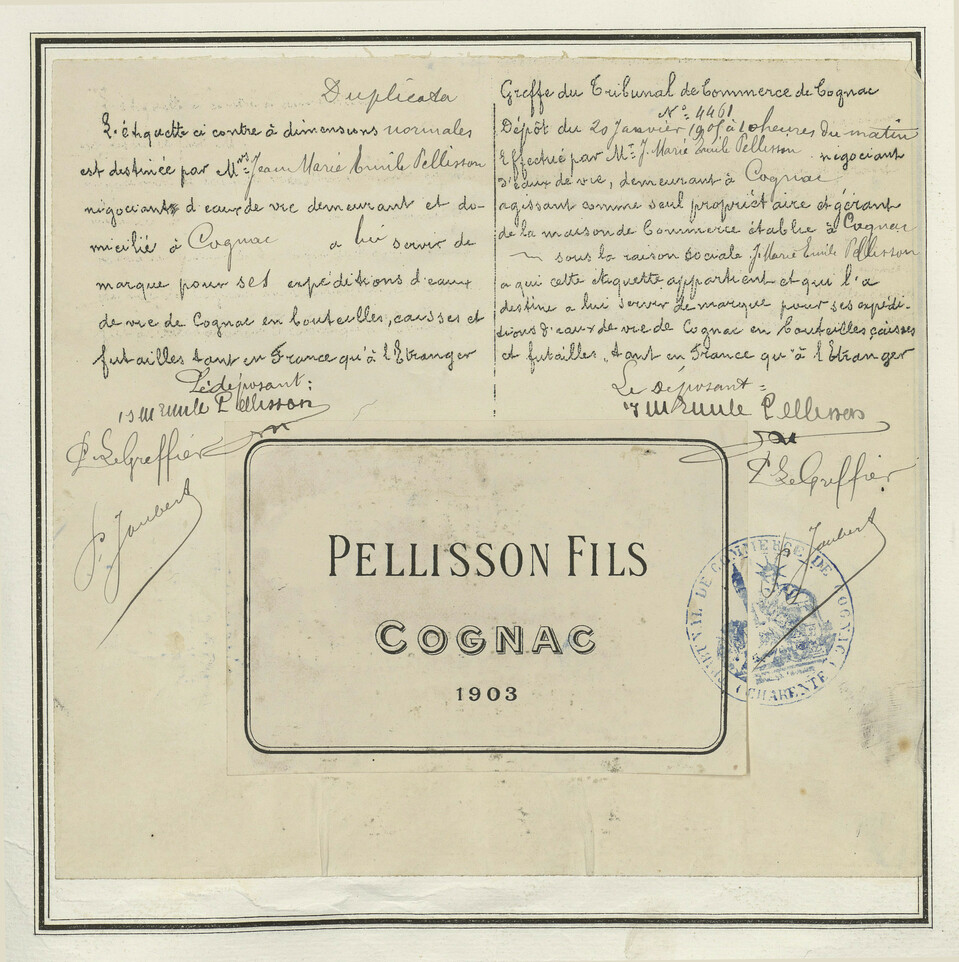 Duplicata
L'étiquette ci contre à dimensions normales
est destinée par Mrs Jean Marie Emile Pellisson
négociant d'eaux de vie demeurant et do-
micilié à Cognac a lui servir de
marque pour ses expéditions d'eaux
de vie de Cognac en bouteilles, caisses et
futailles tant en France qu'à l'Etranger
Le déposant:
J M Emile Pellisson
P. Le Greffier
P. Jaubert
Greffe du Tribunal de Commerce de Cognac
No: 4461
Dépôt du 20 Janvier à 10 heures du matin
Effectué par Mr. J. Marie Emile Pellisson négociant
d'eaux de vie, demeurant à Cognac
agissant comme seul propriétaire et gérant
de la maison de Commerce établie à Cognac
sous la raison sociale J. Marie Emile Pellisson
a qui cette étiquette appartient et qui l'a
destine a lui servir de marque pour ses expédi-
tions d'eaux de vie de Cognac en bouteilles caisses
et futailles, tant en France qu'à l'Etranger
Le déposant:
J M Emile Pellisson
P. Le Greffier
P. Jaubert
PELLISSON FILS
COGNAC
1903
TRIBUNAL DE COMMERCE DE COGNAC
(CHARENTE)